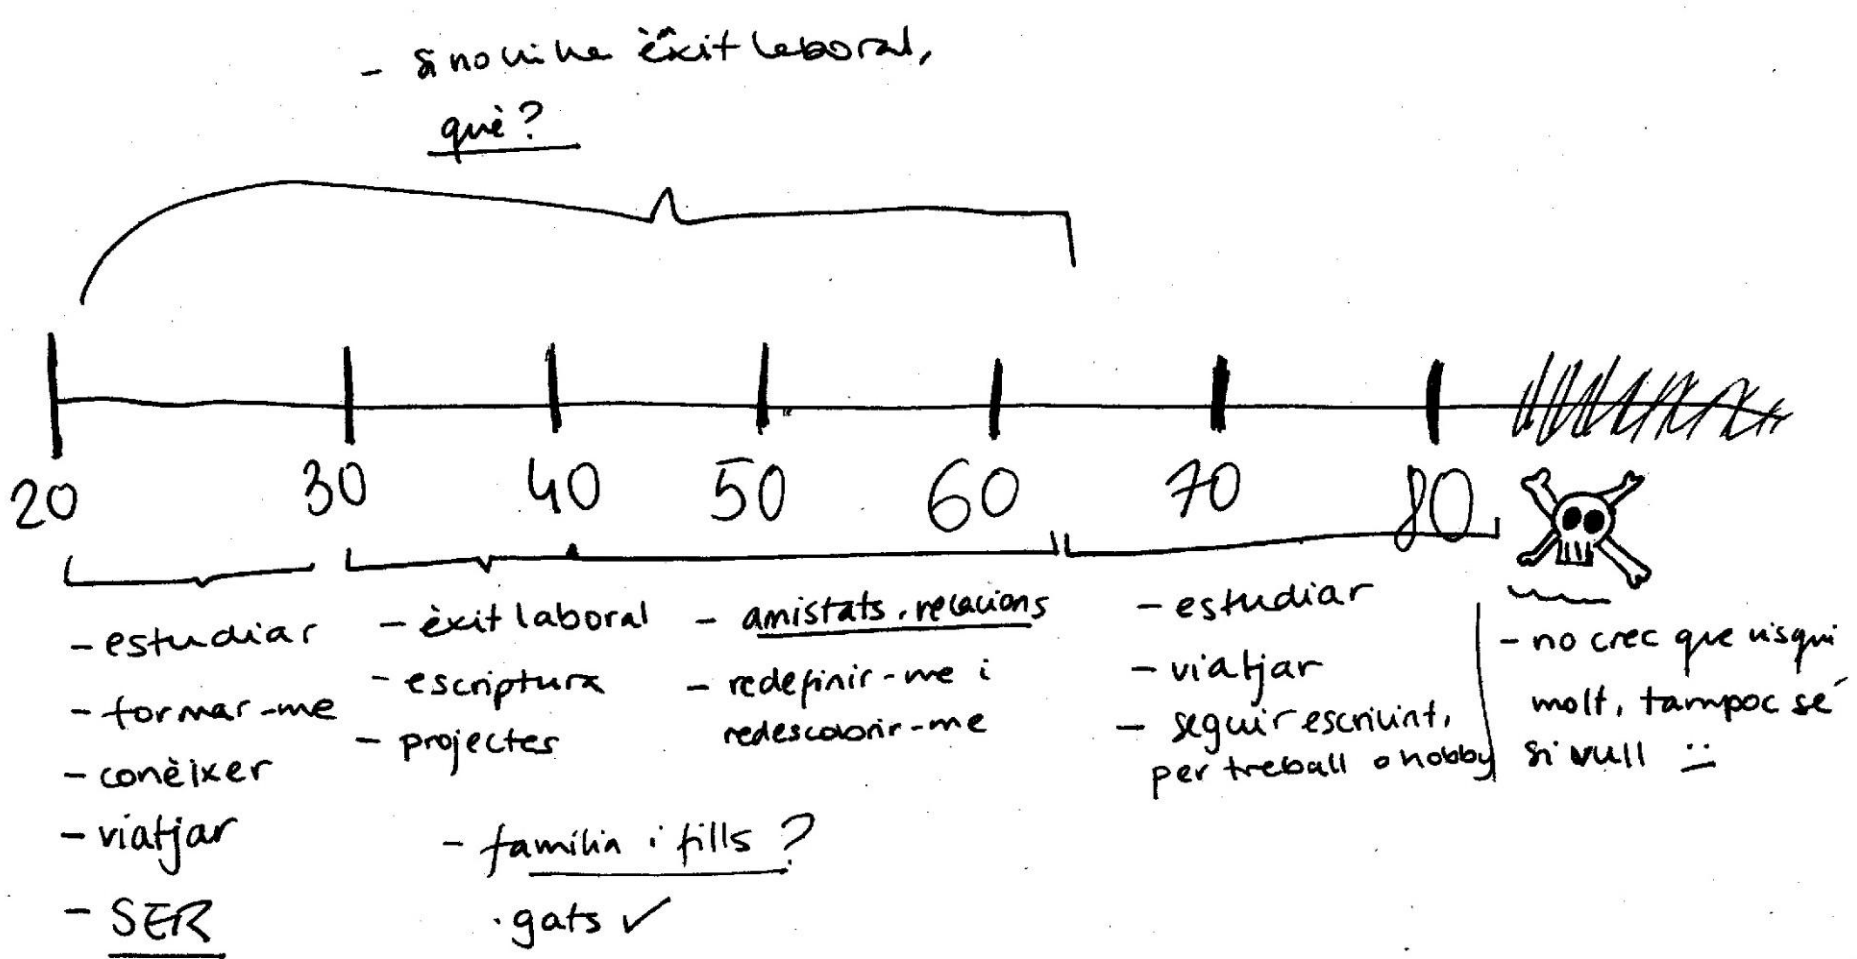 - si no hi ha èxit laboral,
què?
20 30 40 50 60 70 80
- estudiar
- formar-me
- conèixer
- viatjar
- SER
- èxit laboral
- escriptura
- projectes
- amistats, relacions
- redefinir-me i
redescobrir-me
- família i fills?
· gats ✓
- estudiar
- viatjar
- seguir escrivint,
per treball o hobby
- no crec que visqui
molt, tampoc sé
si vull